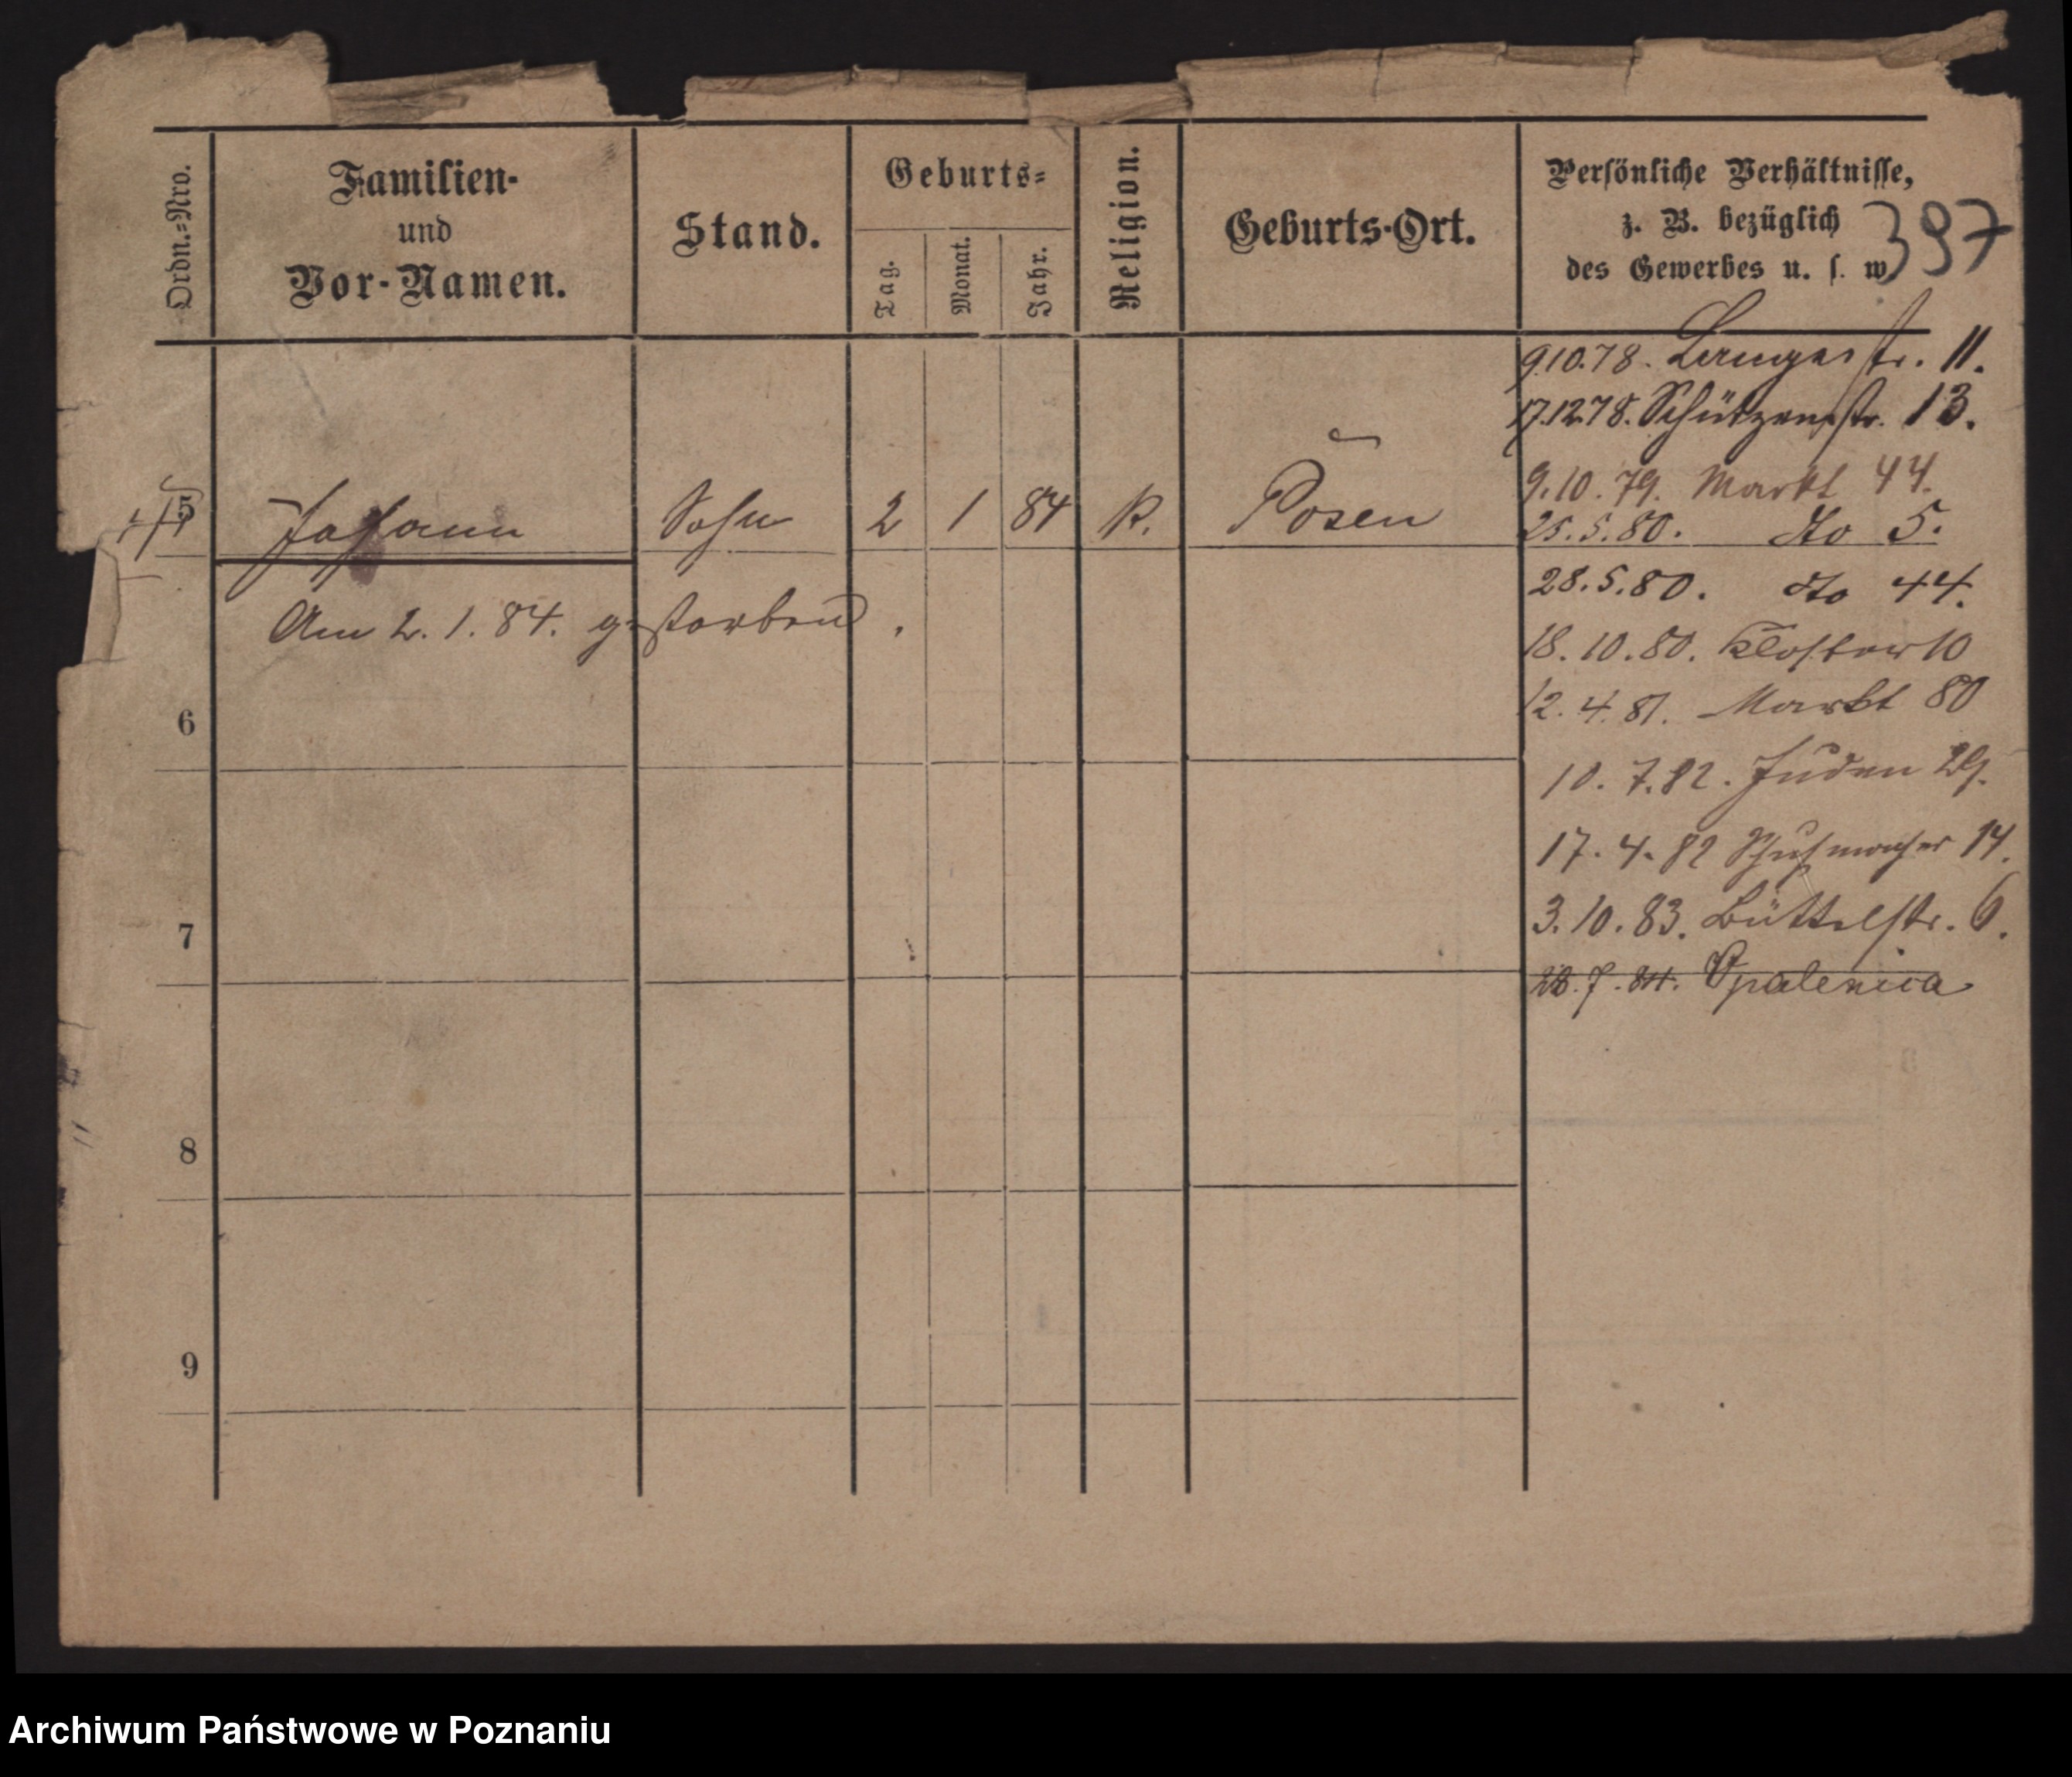 Ordn.-Nro.
Familien-
und
Vor-Namen.
Stand.
Geburts-
Tag.
Monat.
Jahr.
Religion.
Geburts-Ort.
Persönliche Verhältnisse,
z. B. bezüglich
des Gewerbes u. s. w.
397
9.10.78. Langestr. 11.
17.12.78. Schützenstr. 13.
9.10.79. Markt 44.
5 Johann Sohn 2 1 84 K. Posen
25.5.80. dto 5.
28.5.80. dto 44.
Am 2.1.84. gestorben.
18.10.80. Kloster 10
12.4.81. Markt 80
6
10.7.82. Juden 29.
17.4.82 Schuhmacher 14.
3.10.83. Büttelstr. 6.
7
28.7.84. Opalenica
8
9
Archiwum Państwowe w Poznaniu